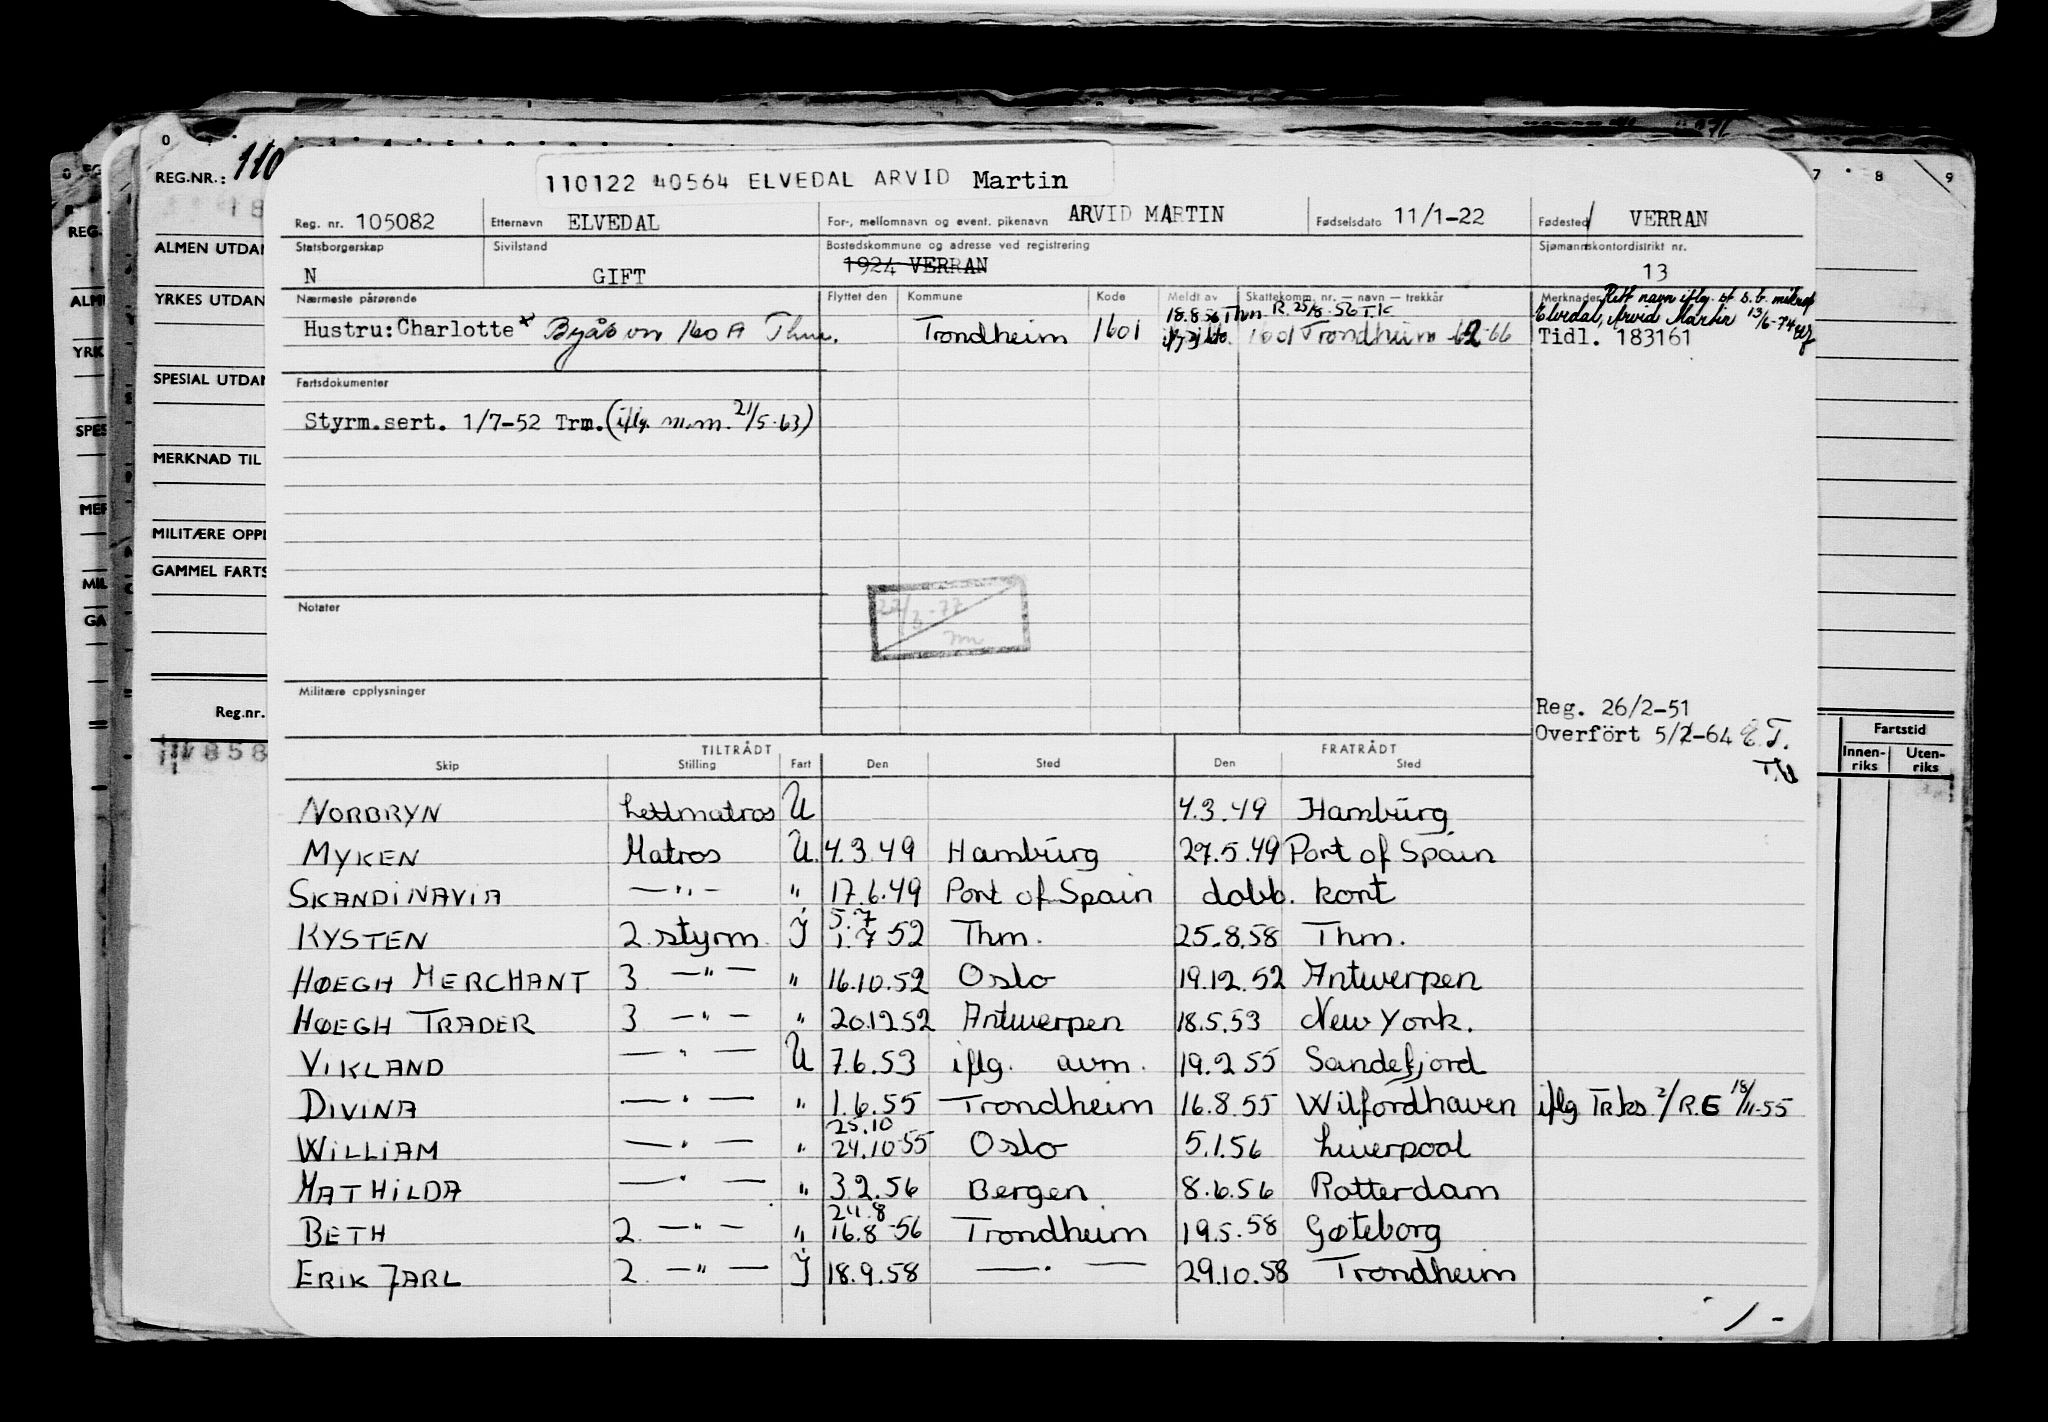 REG.NR.: 110
110122 40564 ELVEDAL ARVID Martin
Reg. nr. 105082 Etternavn ELVEDAL For-, mellomnavn og event. pikenavn ARVID MARTIN Fødselsdato 11/1-22 Fødested VERRAN
Statsborgerskap N Sivilstand GIFT Bostedskommune og adresse ved registrering 1924 VERRAN Sjømannskontordistrikt nr. 13
Nærmeste pårørende Flyttet den Kommune Kode Meldt av Skattekomm. nr. — navn — trekkår Merknader Rett navn iflg.
18.8.56 Thm R. 25/8-56 T.K Elvedal, Arvid Martin 13/6-74
Hustru: Charlotte Trondheim 1601 1601 Trondheim 66 Tidl. 183161
Fartsdokumenter
Styrm.sert. 1/7-52 Trm. (iflg. m.m. 21/5-63)
Notater
Militære opplysninger
Reg. 26/2-51
Overfört 5/2-64 E.T.
TILTRÅDT FRATRÅDT
Skip Stilling Fart Den Sted Den Sted
NORBRYN Lettmatros U 4.3.49 Hamburg
MYKEN Matros U. 4.3.49 Hamburg 27.5.49 Port of Spain
SKANDINAVIA —"— " 17.6.49 Port of Spain dobb. kont
5.7
KYSTEN 2. styrm. I 1.7 52 Thm. 25.8.58 Thm.
HØEGH MERCHANT 3 —"— " 16.10.52 Oslo 19.12.52 Antwerpen
HØEGH TRADER 3 —"— " 20.12 52 Antwerpen 18.5.53 New York.
VIKLAND —"— U 7.6.53 iflg. avm. 19.2 55 Sandefjord
DIVINA —"— " 1.6.55 Trondheim 16.8.55 Wilfordhaven iflg Trks 2/R.E 18/11-55
25.10
WILLIAM —"— " 24.10-55 Oslo 5.1.56 Liverpool
MATHILDA —"— " 3 2.56 Bergen 8.6.56 Rotterdam
24.8
BETH 2. —"— " 16.8-56 Trondheim 19.5.58 Gøteborg
ERIK JARL 2. —"— I 18.9.58 —"— 29.10.58 Trondheim
ALMEN UTDAN
YRKES UTDAN
SPESIAL UTDAN
MERKNAD TIL
MILITÆRE OPPL
GAMMEL FARTS
Reg.nr.
Fartstid
Innen-riks Uten-riks